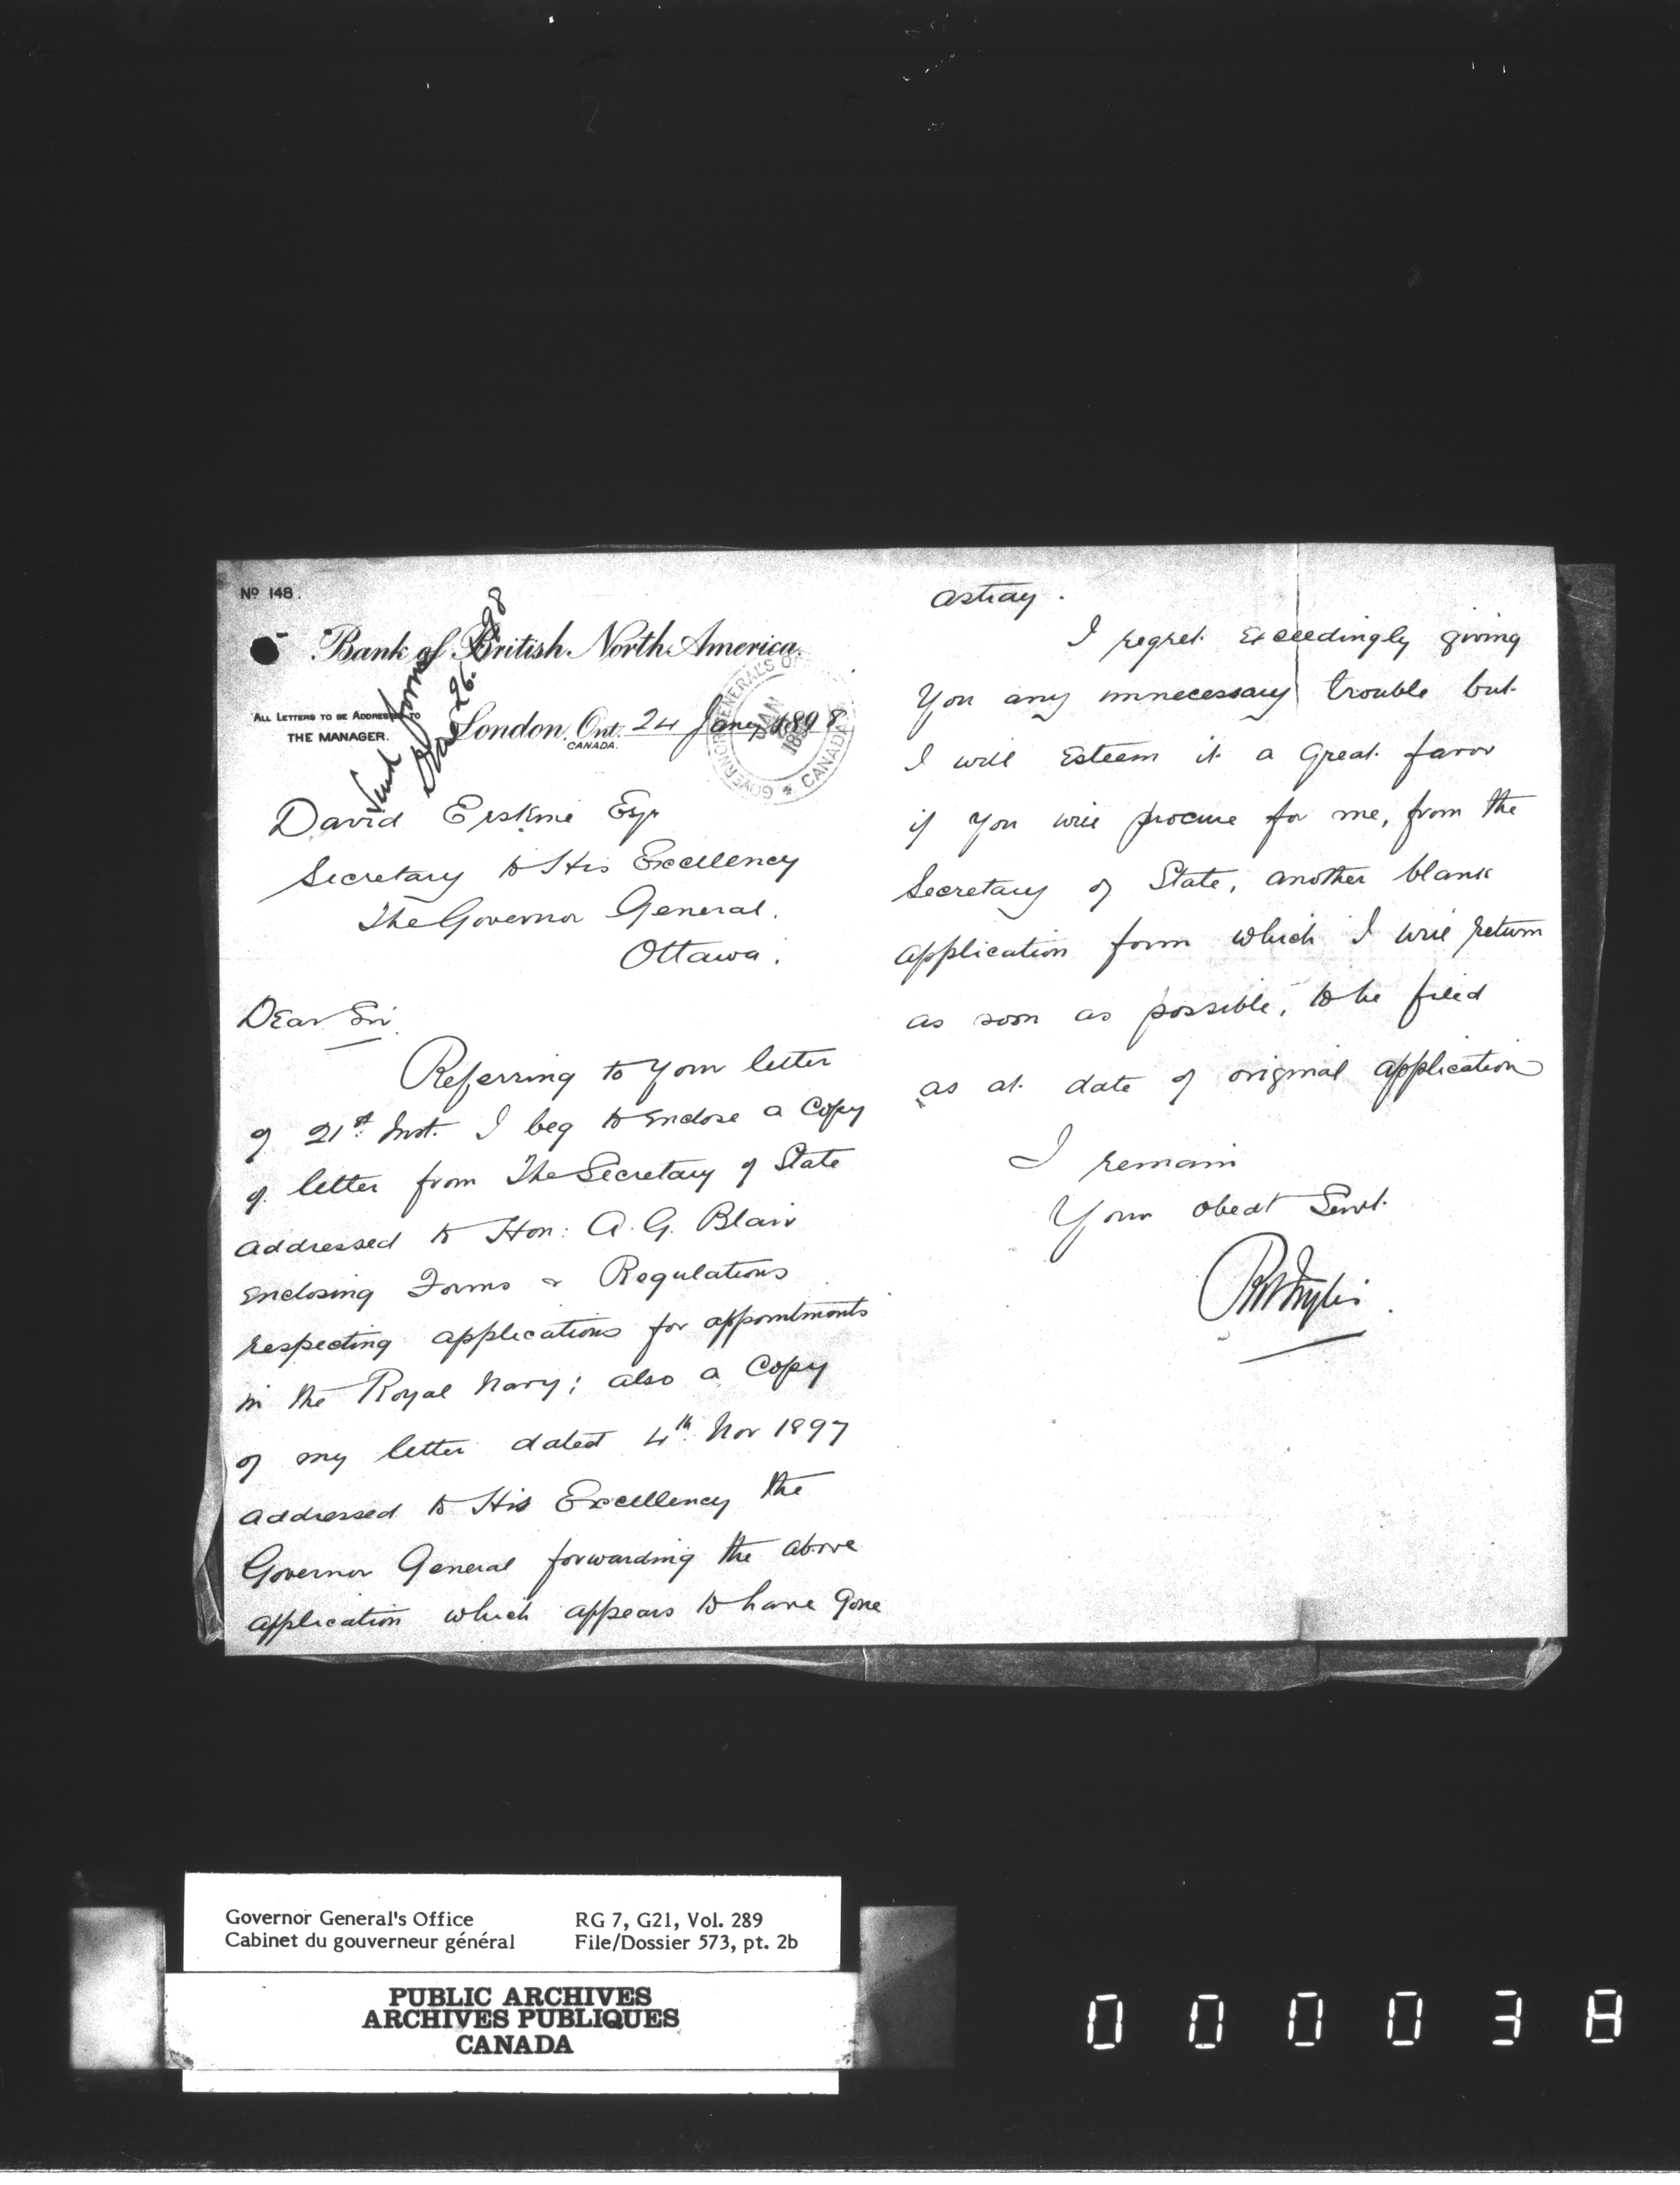 No 148.
Sent forms
Jan 26. 98
Bank of British North America.
ALL LETTERS TO BE ADDRESSED TO
THE MANAGER.
London, Ont. 24 Jany 1898
CANADA.
GOVERNOR GENERAL'S OF
JAN
189
CANADA
David Erskine Esqr
Secretary to His Excellency
The Governor General.
Ottawa.
Dear Sir
Referring to your letter
of 21st Inst. I beg to enclose a copy
of letter from The Secretary of State
addressed to Hon: A. G. Blair
enclosing Forms & Regulations
respecting applications for appointments
in the Royal Navy; also a copy
of my letter dated 4th Nov 1897
addressed to His Excellency the
Governor General forwarding the above
application which appears to have gone
astray.
I regret exceedingly giving
you any unnecessary trouble but
I will esteem it a great favor
if you will procure for me, from the
Secretary of State, another blank
application form which I will return
as soon as possible, to be filed
as at date of original application
I remain
Your obedt Servt.
Governor General's Office
Cabinet du gouverneur général
RG 7, G21, Vol. 289
File/Dossier 573, pt. 2b
PUBLIC ARCHIVES
ARCHIVES PUBLIQUES
CANADA
000038